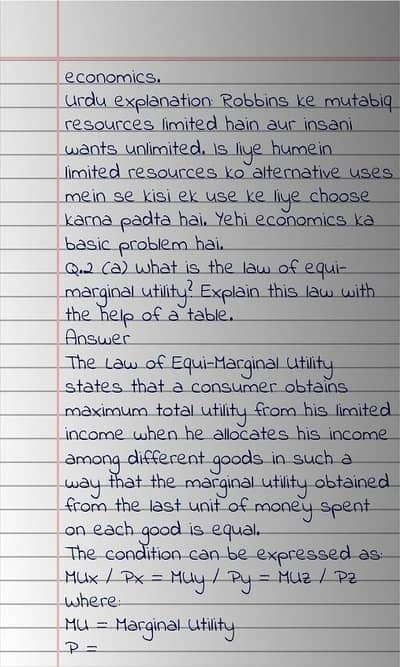 economics.
Urdu explanation: Robbins ke mutabiq
resources limited hain aur insani
wants unlimited. Is liye humein
limited resources ko alternative uses
mein se kisi ek use ke liye choose
karna padta hai. Yehi economics ka
basic problem hai.
Q.2 (a) What is the law of equi-
marginal utility? Explain this law with
the help of a table.
Answer
The Law of Equi-Marginal Utility
states that a consumer obtains
maximum total utility from his limited
income when he allocates his income
among different goods in such a
way that the marginal utility obtained
from the last unit of money spent
on each good is equal.
The condition can be expressed as:
MUx / Px = MUy / Py = MUz / Pz
where:
MU = Marginal Utility
P =